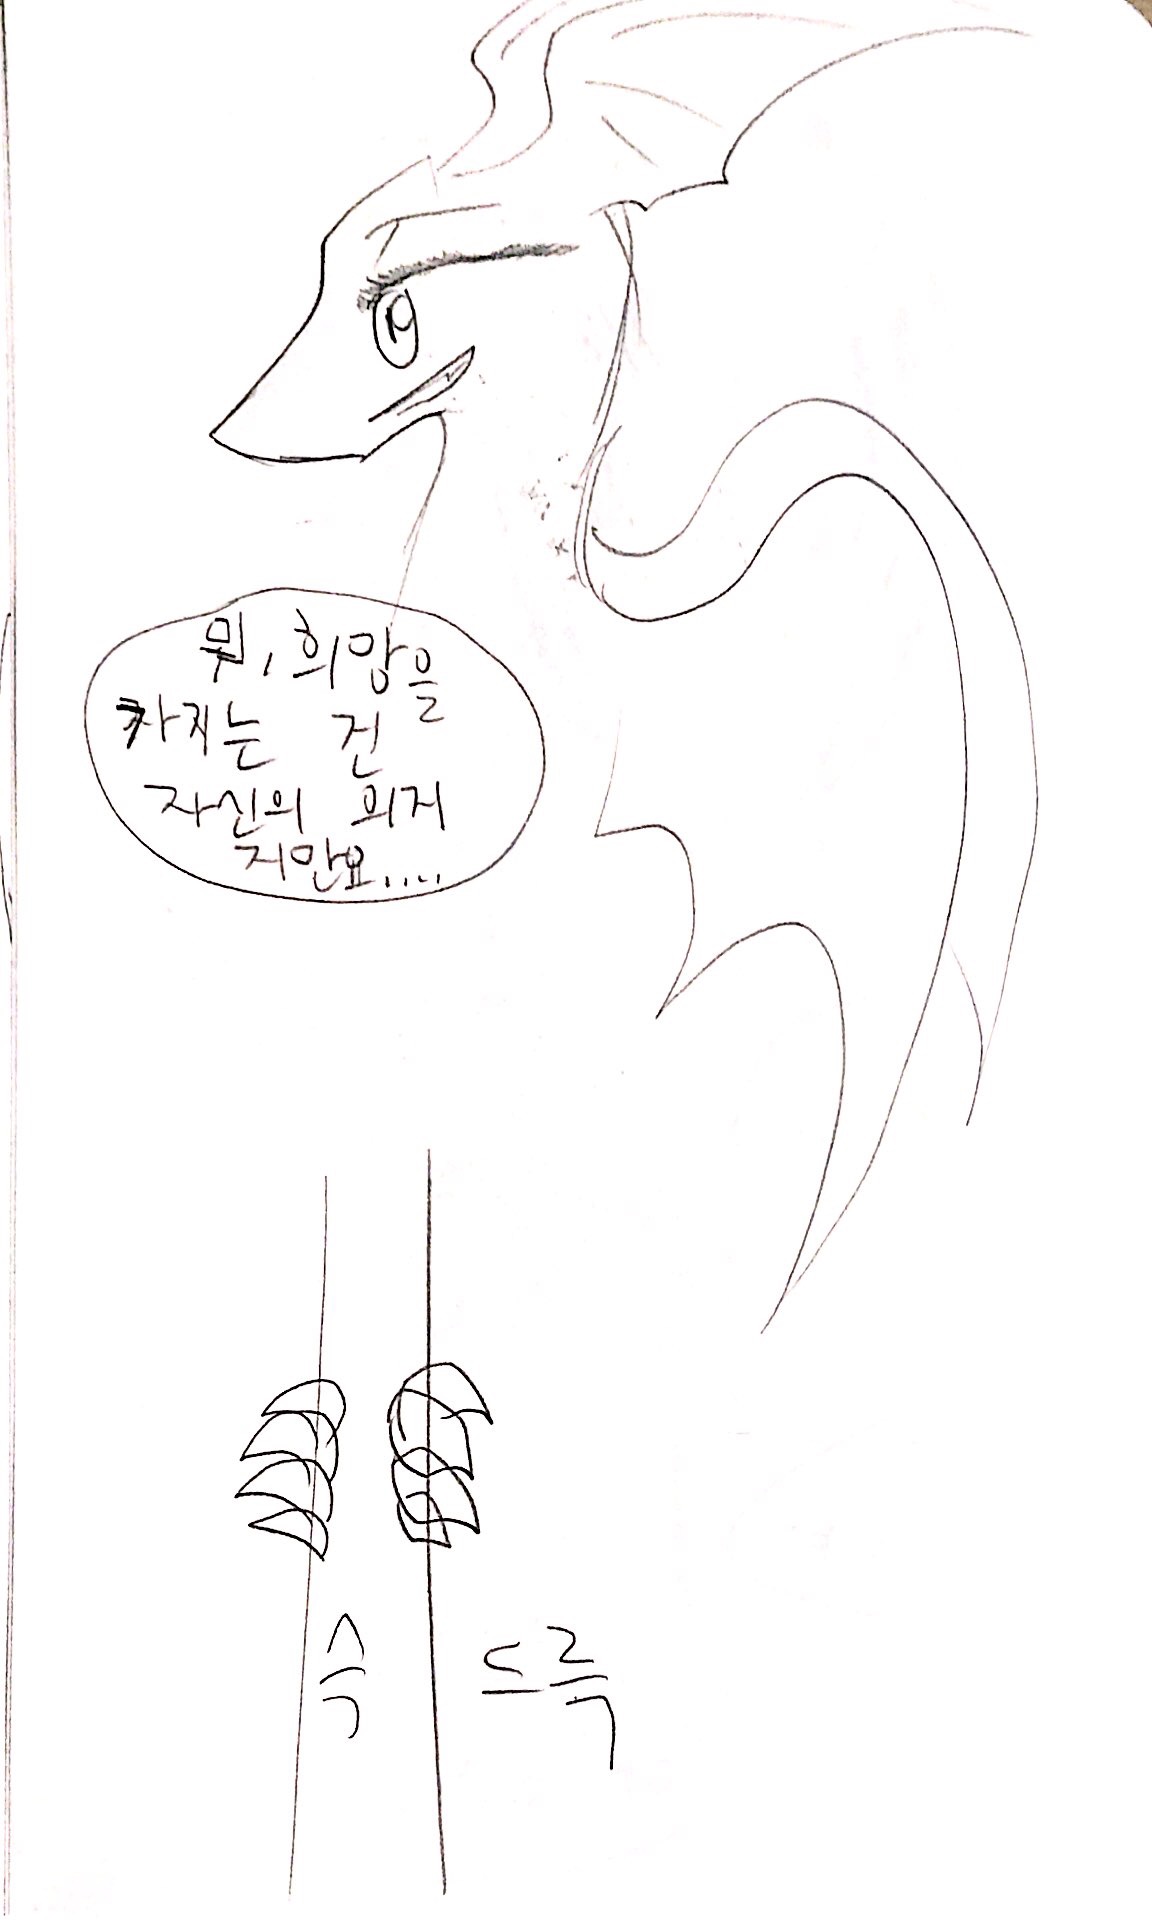 뭐, 희망을
카지는 건
자신의 의지
지만요....
슥
스륵